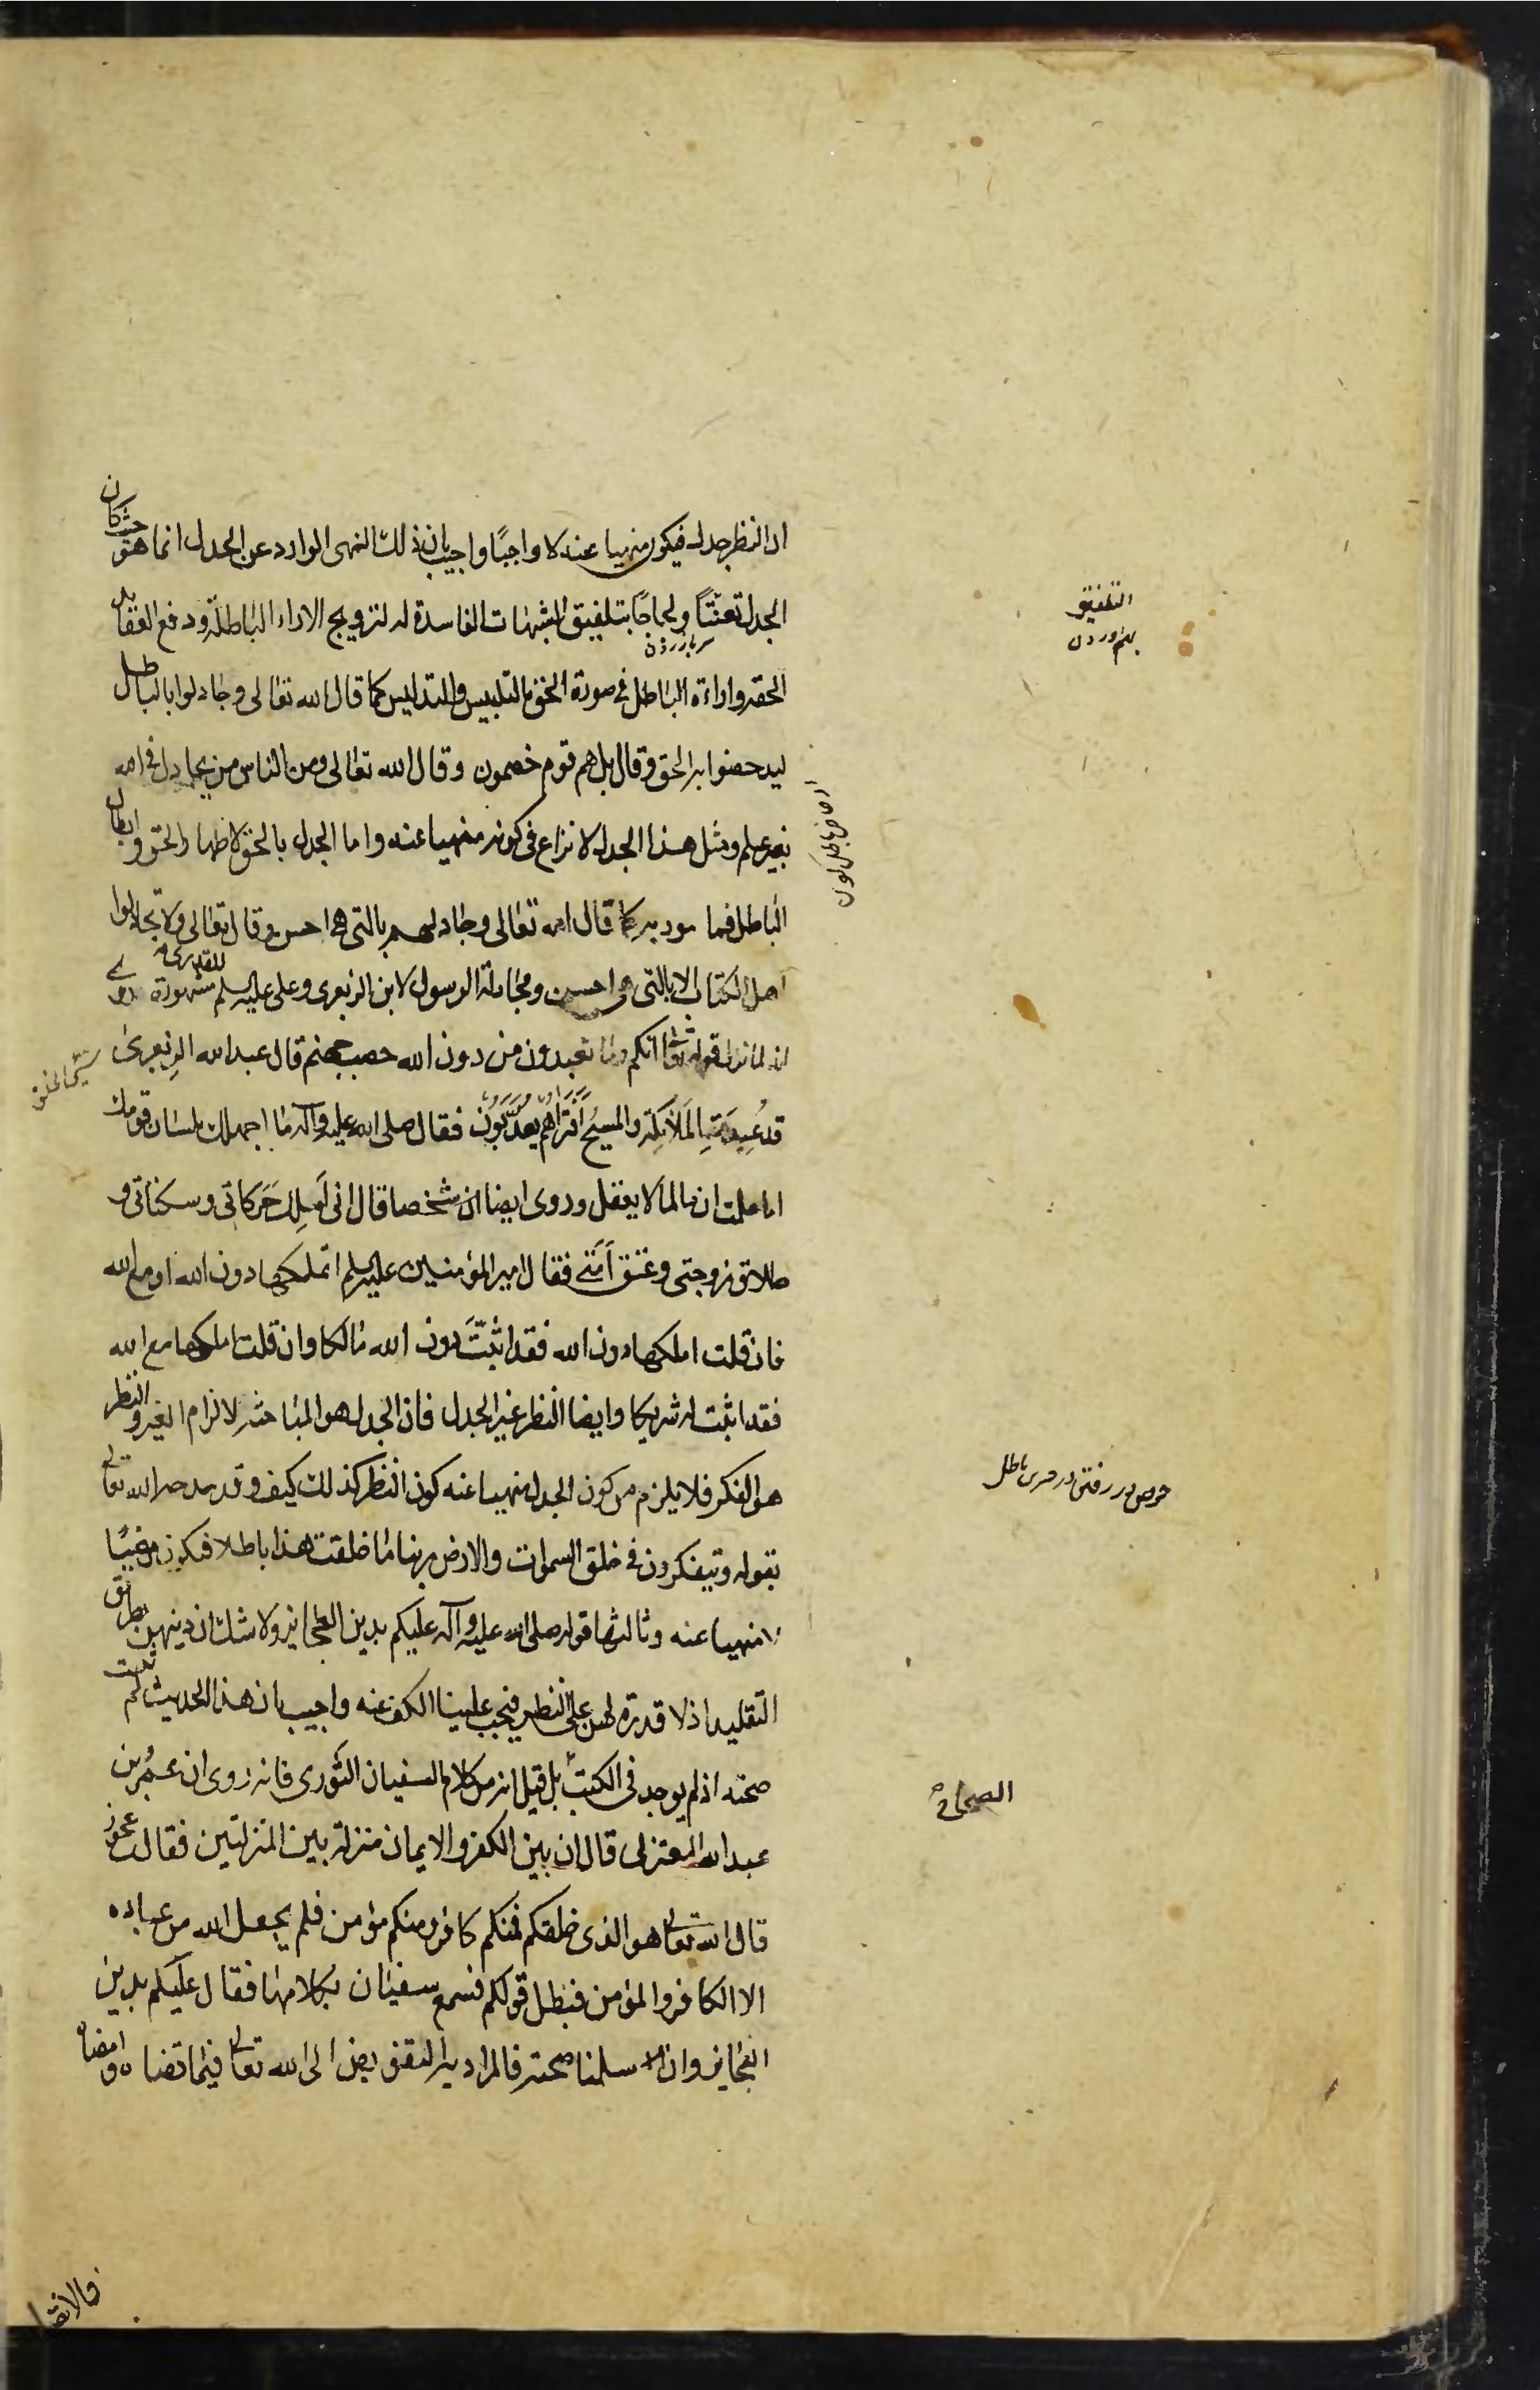 اذ النظر جدل فيكون منهيا عنه لا واجبًا واجيب بان ذلك النهى الوارد عن الجدل انما هو حيث كان
الجدل تعنتًا ولجاجًا بتلفيق الشبهات الفاسدة له لترويج الاراء الباطلة ودفع العقايد
الحقه واراءة الباطل فى صورة الحق بالتلبيس والتدليس كما قال الله تعالى وجادلوا بالباطل
ليدحضوا به الحق وقال بل هم قوم خصمون وقال الله تعالى ومن الناس من يجادل فى الله
بغير علم ومثل هذا الجدل لا نزاع فى كونه منهيا عنه واما الجدل بالحق لاظهار الحق وابطال
الباطل فمامور به كما قال الله تعالى وجادلهم بالتى هى احسن وقال تعالى ولا تجادلوا
اهل الكتاب الا بالتى هى احسن ومجادلة الرسول لابن الزبعرى وعلى عليه السلم للقدرى مشهورة روى
انه لما نزل قوله تعالى انكم وما تعبدون من دون الله حصب جهنم قال عبد الله الزبعرى
قد عبدت الملائكة والمسيح أفتراهم يعذبون فقال صلى الله عليه وآله ما اجهلك بلسان قومك
اما علمت ان ما لما لا يعقل وروى ايضا ان شخصا قال انى أملك حركاتى وسكناتى و
طلاق زوجتى وعتق أمتى فقال امير المؤمنين عليه السلم اتملكها دون الله او مع الله
فان قلت املكها دون الله فقد اثبتّ دون الله مالكا وان قلت املكها مع الله
فقد اثبت له شريكا وايضا النظر غير الجدل فان الجدل هو المباحثه لالزام الغير والنظر
هو الفكر فلا يلزم من كون الجدل منهيا عنه كون النظر كذلك كيف وقد مدحه الله تعالى
بقوله ويتفكرون فى خلق السموات والارض ربنا ما خلقت هذا باطلا فيكون مرغبًا
لا منهيا عنه وثالثها قوله صلى الله عليه وآله عليكم بدين العجايز ولا شك ان دينهن بطريق
التقليد اذ لا قدرة لهن على النظر فيجب علينا الكف عنه واجيب بان هذا الحديث لم تثبت
صحته اذ لم يوجد فى الكتب بل قيل انه من كلام السفيان الثورى فانه روى ان عمر بن
عبد الله المعتزلى قال ان بين الكفر والايمان منزلة بين المنزلتين فقال عجوز
قال الله تعالى هو الذى خلقكم فمنكم كافر ومنكم مؤمن فلم يجعل الله من عباده
الا الكافر والمؤمن فبطل قولكم فسمع سفيان بكلامها فقال عليكم بدين
العجايز وان سلمنا صحته فالمراد به التفويض الى الله تعالى فيما قضاه وامضاه
التلفيق
بهم اوردن